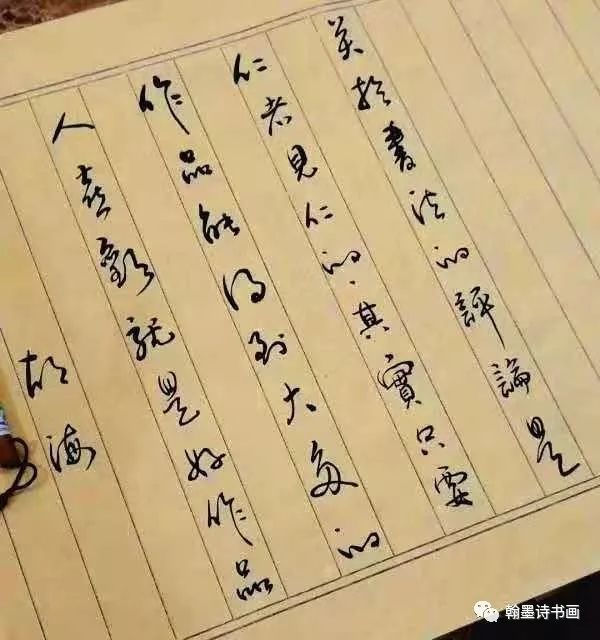 关於書法的評論是
仁者見仁的、其實只要
作品能得到大多的
人喜歡就是好作品
胡海
翰墨诗书画